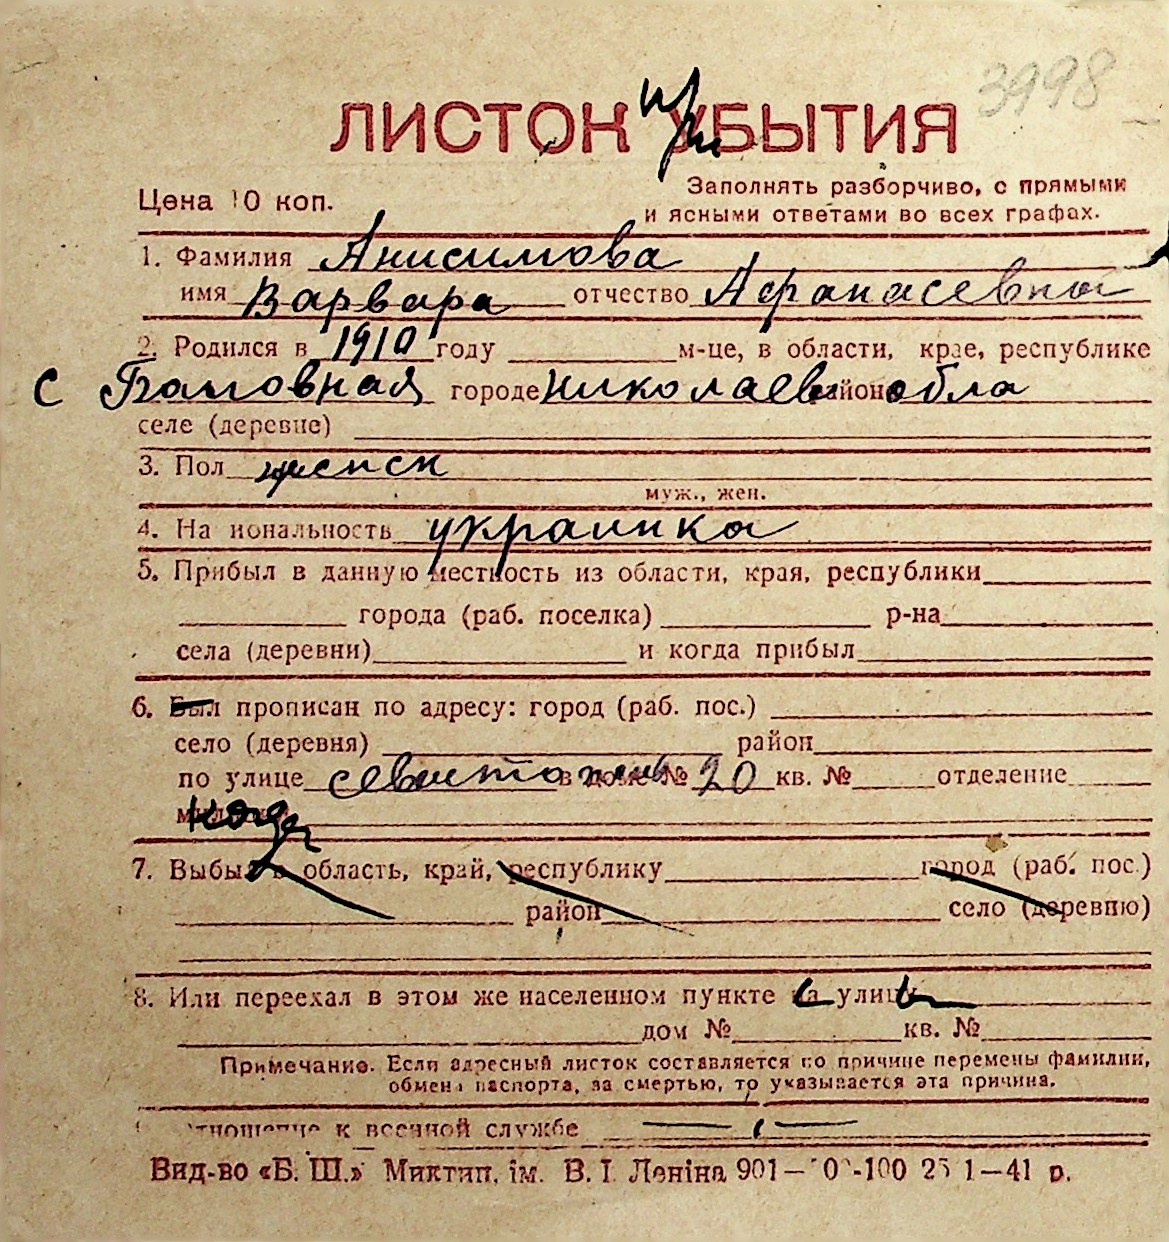 3998
ЛИСТОК при УБЫТИЯ
Цена 10 коп.
Заполнять разборчиво, с прямыми
и ясными ответами во всех графах.
1. Фамилия Анисимова
имя Варвара отчество Афанасевна
2. Родился в 1910 году м-це, в области, крае, республике
с городе Николаев районе обла
селе (деревне)
3. Пол женск
муж., жен.
4. Национальность украинка
5. Прибыл в данную местность из области, края, республики
города (раб. поселка) р-на
села (деревни) и когда прибыл
6. Был прописан по адресу: город (раб. пос.)
село (деревня) район
по улице в доме № 20 кв. № отделение
милиции когда
7. Выбыл в область, край, республику город (раб. пос.)
район село (деревню)
8. Или переехал в этом же населенном пункте на улицу
дом № кв. №
Примечание. Если адресный листок составляется по причине перемены фамилии,
обмена паспорта, за смертью, то указывается эта причина.
Отношение к военной службе
Вид-во «Б. Ш.» Миктип. ім. В. І. Леніна 901— -100 1—41 р.